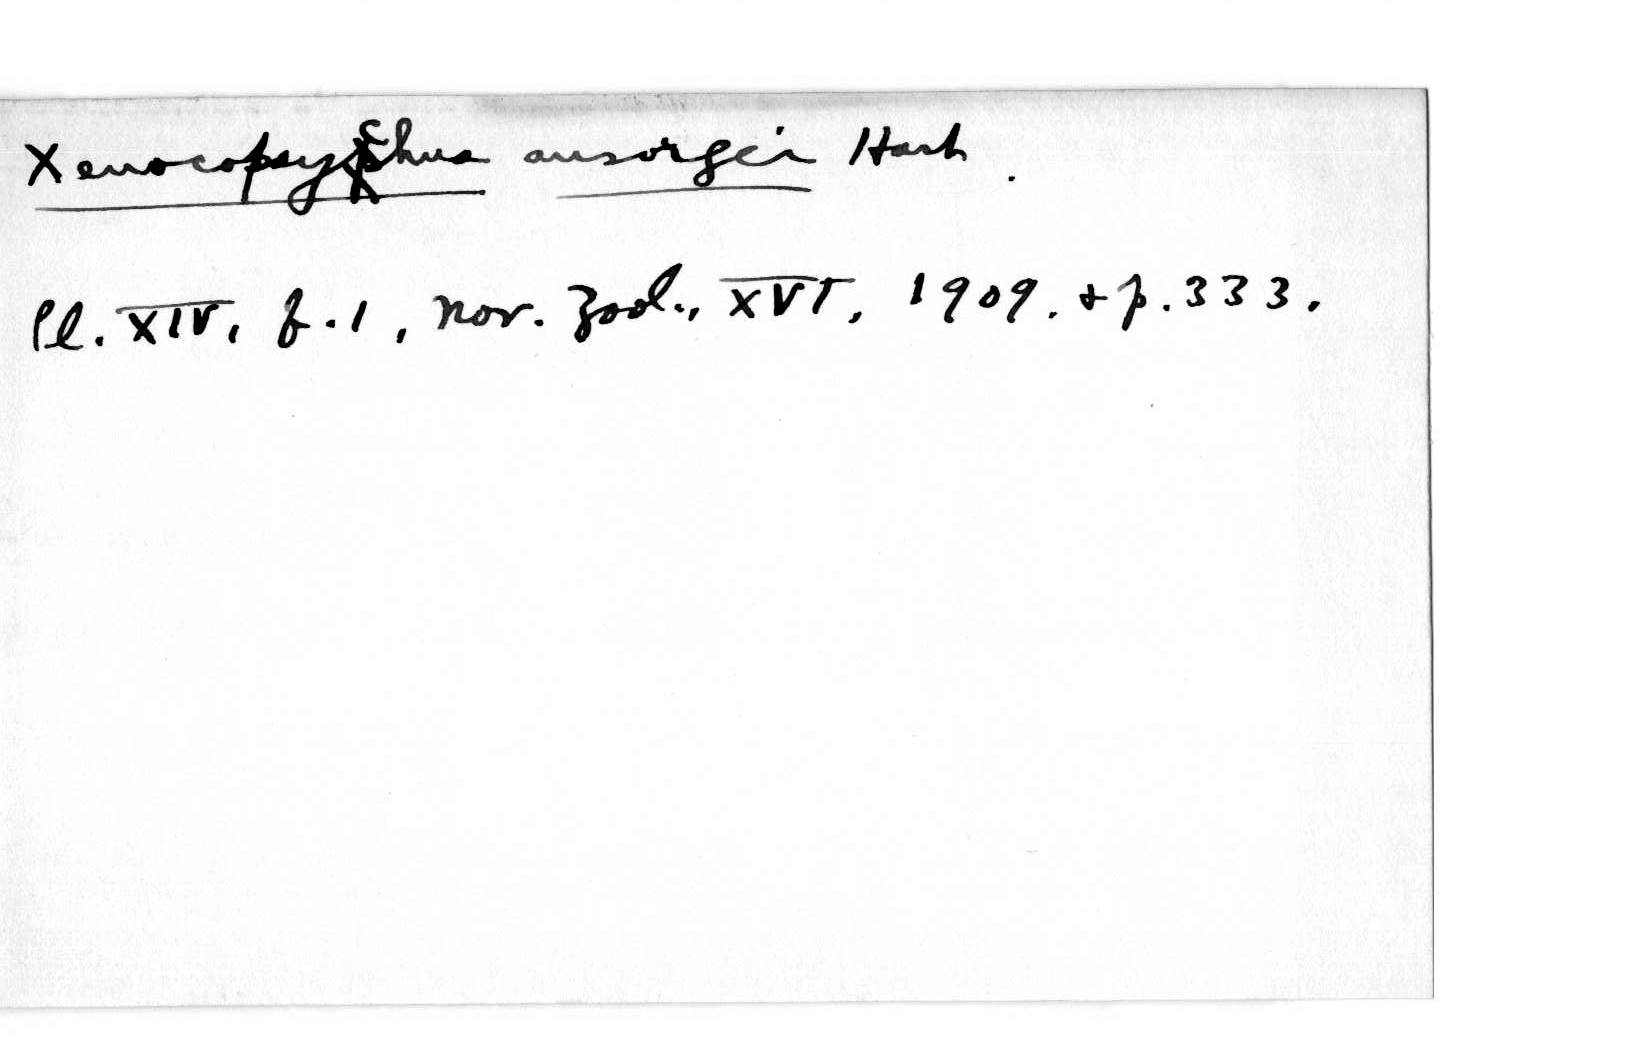 Xenocopsychus ansorgei Hart.
Pl. XIV, f.1, Nov. Zool., XVI, 1909. + p.333.